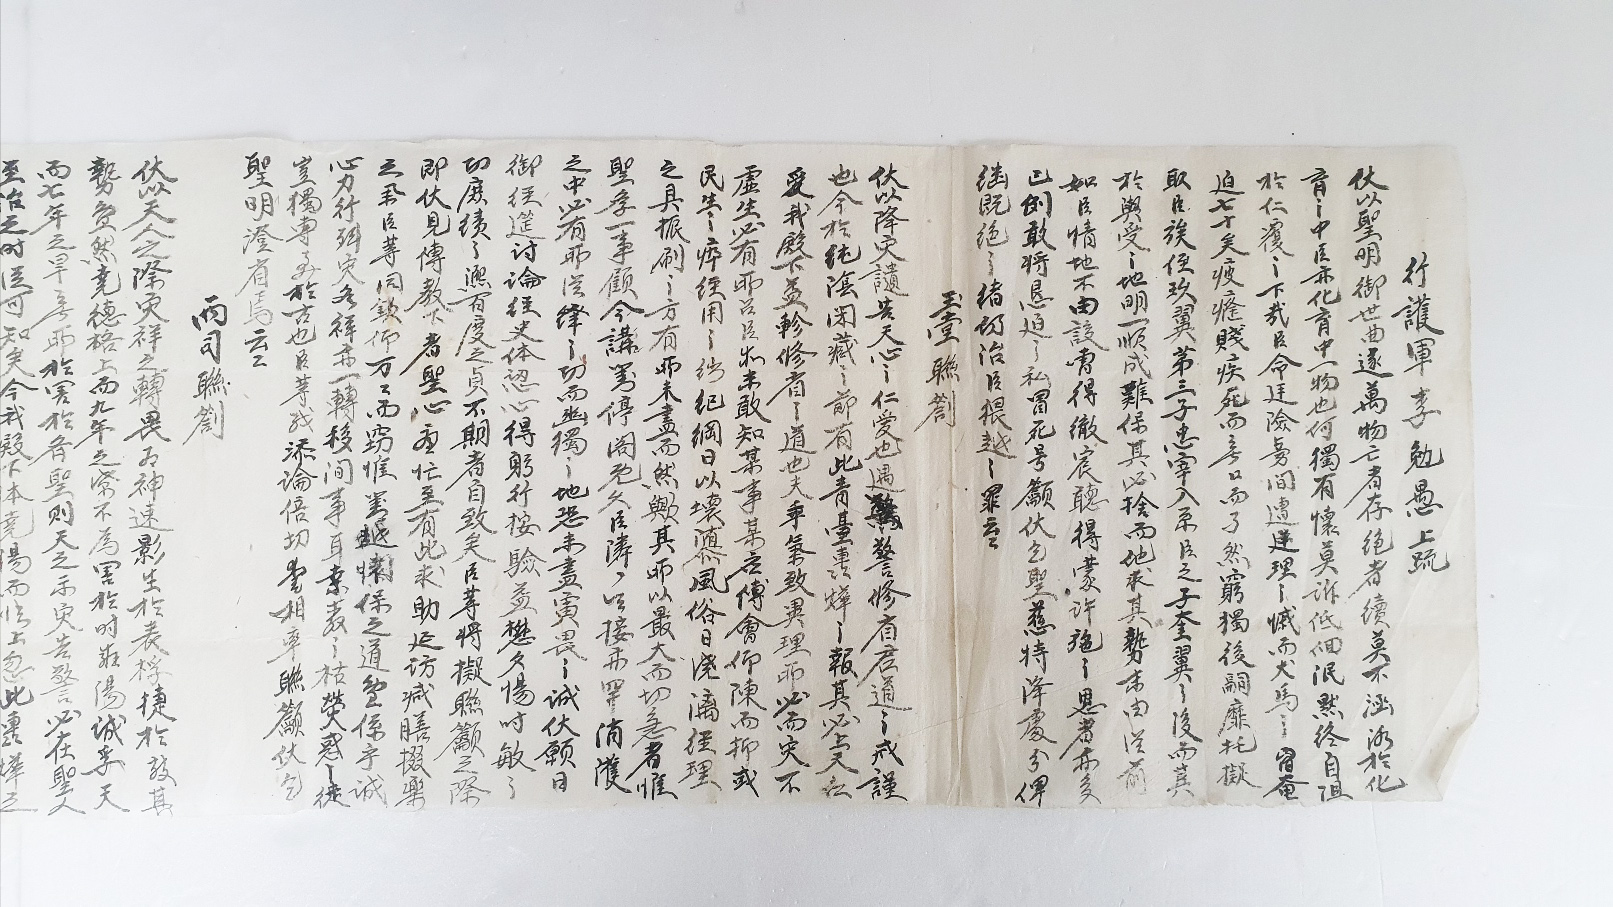 行護軍李勉愚上疏
伏以聖明御世曲遂萬物亡者存絕者續莫不涵泳於化
育之中臣亦化育中一物也何獨有懷莫訴低佪泯默終自阻
於仁覆之下哉臣命途險釁間遭逆理之慽而犬馬之齒奄
迫七十矣疲癃賤疾死而無日而孑然窮獨後嗣靡托擬
取臣族侄玖翼第三子忠宰入系臣之子奎翼之後而其
於與受之地明一順成難保其必捨而他求其勢末由從前
如臣情地不由該曹得徹宸聽得蒙許施之恩者亦多
已例敢將懇迫之私冒死号籲伏乞聖慈特降處分俾
繼既絕之緒仍治臣猥越之罪云云
玉堂聯劄
伏以降灾譴告天心之仁愛也遇警修省君道之戒謹
也今於純陰閉藏之節有此青臺書燁之報其必上天
愛我殿下益軫修省之道也夫乖氣致異理所必而灾不
虛生必有所召臣未敢知某事某應傅會仰陳而抑或
民生之瘁經用之紀綱日以壞風俗日澆漓經理
之具振刷之方有所未盡而然歟其所以最大而切急者惟
聖學一事顧今講筵停閣免久臣隣之以接亦罕消漢
之中必有所從繹之功而幽獨之地恐未盡寅畏之誠伏願日
御經筵討論經史体認心得躬行按驗益懋夕惕時敏之
功庶績之凞百度之貞不期者自致矣臣等將擬聯籲之際
即伏見傳敎下者聖心亟忙至有此求助延訪減膳撤樂
之擧臣等同欽仰万万而竊惟對越懷保之道亶係乎誠
心力行弭灾为祥亦一轉移間事耳
豈獨專於古也臣等玆添論倍切相率聯籲伏乞
聖明澄省焉云云
兩司聯劄
伏以天人之際灾祥之轉畏为神速影生於表桴捷於鼓其
勢亶然堯德格上而九年之潦不爲害於時殷湯誠孚天
而七年之旱無所於害於有聖則天之示灾告警必在聖人
至治之時從可知矣今我殿下本堯湯而惟上忽此書燁之